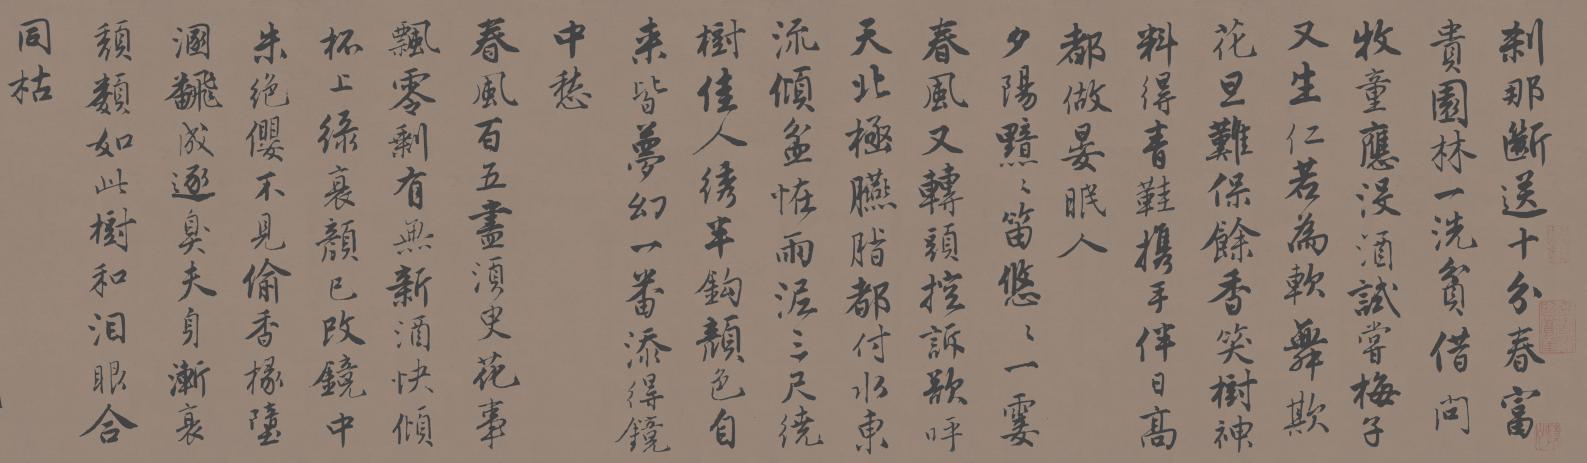 刹那斷送十分春富
貴園林一洗貧借問
牧童應沒酒試嘗梅子
又生仁若為軟舞欺
花旦難保餘香笑樹神
料得青鞋攜手伴日高
都做晏眠人
夕陽黯〻笛悠〻一霎
春風又轉頭控訴欲呼
天北極臙脂都付水東
流傾盆怪雨泥三尺繞
樹佳人繡半鉤顏色自
来皆夢幻一番添得鏡
中愁
春風百五盡須臾花事
飄零剩有無新酒快傾
杯上綠衰顏已改鏡中
朱絕纓不見偷香椽墮
溷飜成逐臭夫身漸衰
頹類如此樹和泪眼合
同枯